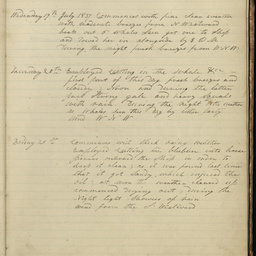 Wednesday 19th July 1837 Commences with fine clear weather
with moderate breezes from N Westward
boats out 5 whales seen got one to ship
and towed her in alongside by 8 P.M.
During the night fresh breezes from W N W
Thursday 20th Employed Cutting in the Whale &c
first part of this day fresh breezes and
cloudy noon and during the latter
part strong gale and heavy squalls
with rain During the night
Whales seen this day by
Wind W N W
Friday 21st Commences with thick rainy weather
Employed Cutting in blubber into horse
pieces the ship in order to
it clean; as it was
that it got which required
Oil; at noon the weather cleared up
commenced trying out; During the
Night light showers of rain
wind from the Westward